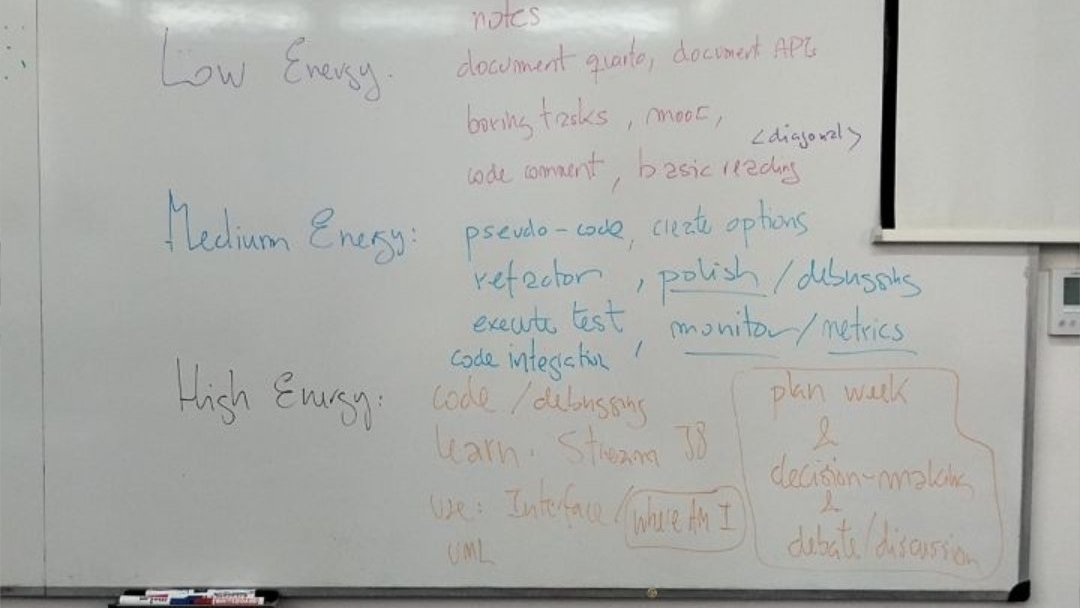 notes
Low Energy.
document quarto, document API
boring tasks, mooc,
<diagonal>
code comment, basic reading
Medium Energy: pseudo-code, create options
refactor, polish / debugging
execute test, monitor/metrics
code integration
High Energy: code / debugging
learn. Stream J8
use: Interface / where Am I
UML
plan week
&
decision-making
&
debate/discussion